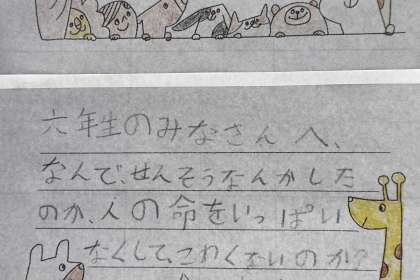 六年生のみなさんへ、
なんで、せんそうなんかした
のか、人の命をいっぱい
なくして、こわくないのか?